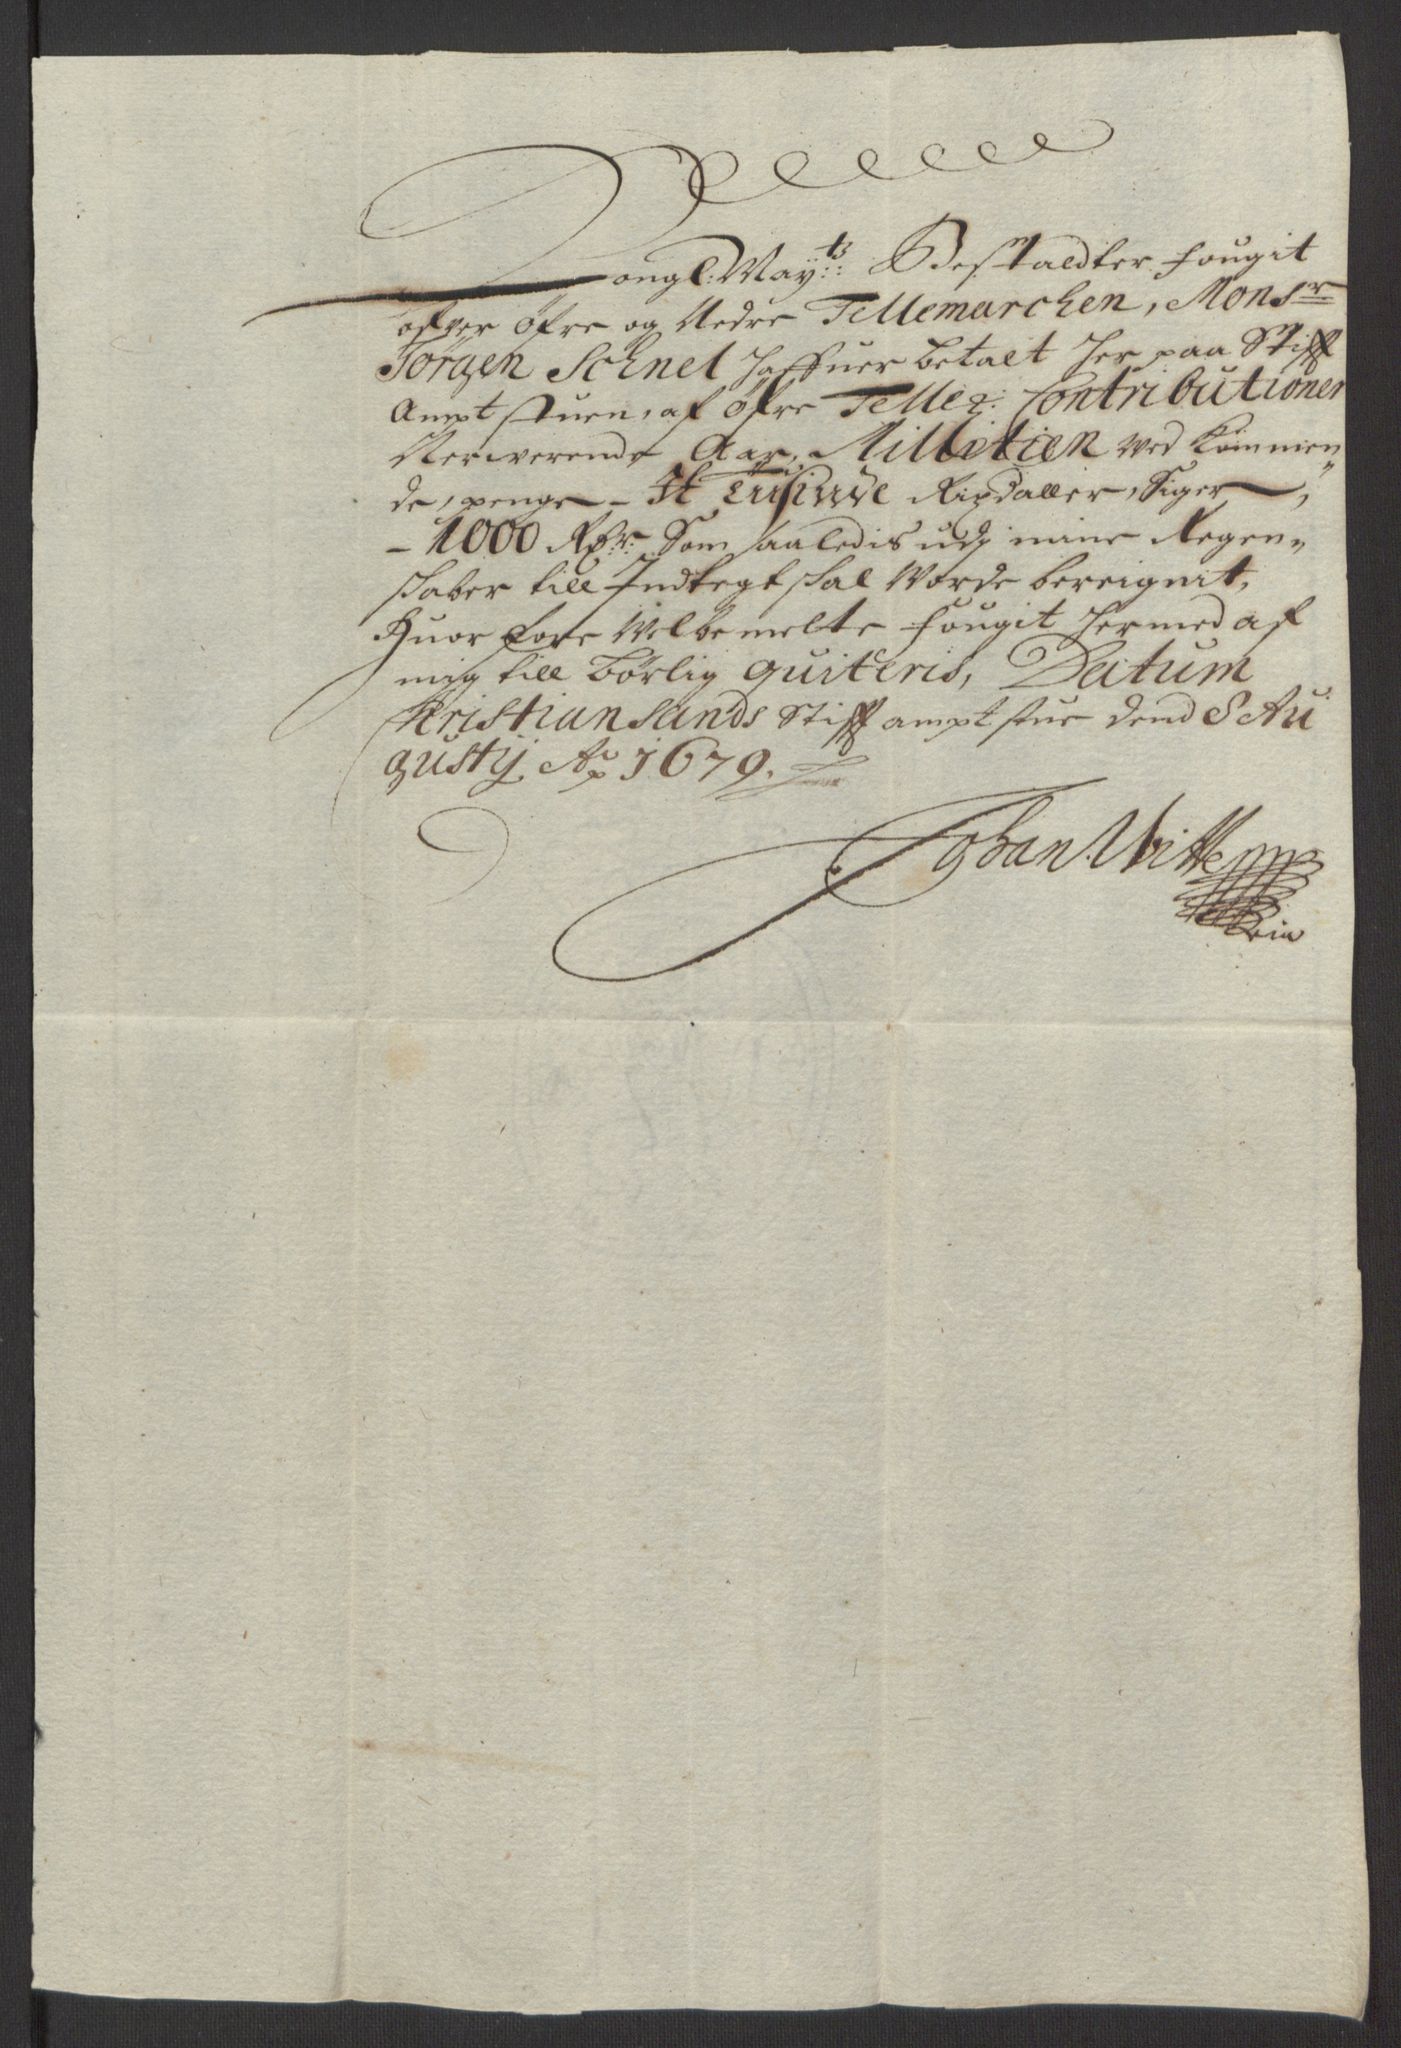 Kongl: May:ts Bestaldter fougit
ofver øfre og Nedre Tellemarchen, Monsr
Jørgen Schnel haffuer betalt her paa Stifft
Ampt stuen, af øfre Telle: Contributioner
Nerverende Aar, Millitien ved kommen
de, penge, - It Tusinde Rixdaller, Siger,
- 1000 Rdr: Som saaledis udj mine Regen-
skaber till Indtegt skal worde bereignit,
Huor fore Velbemelte fougit hermed af
mig till børlig quiteris, Datum
Kristiansands Stifft ampt stue dend 8 Au
gustij Ao 1679.
Johan Witte